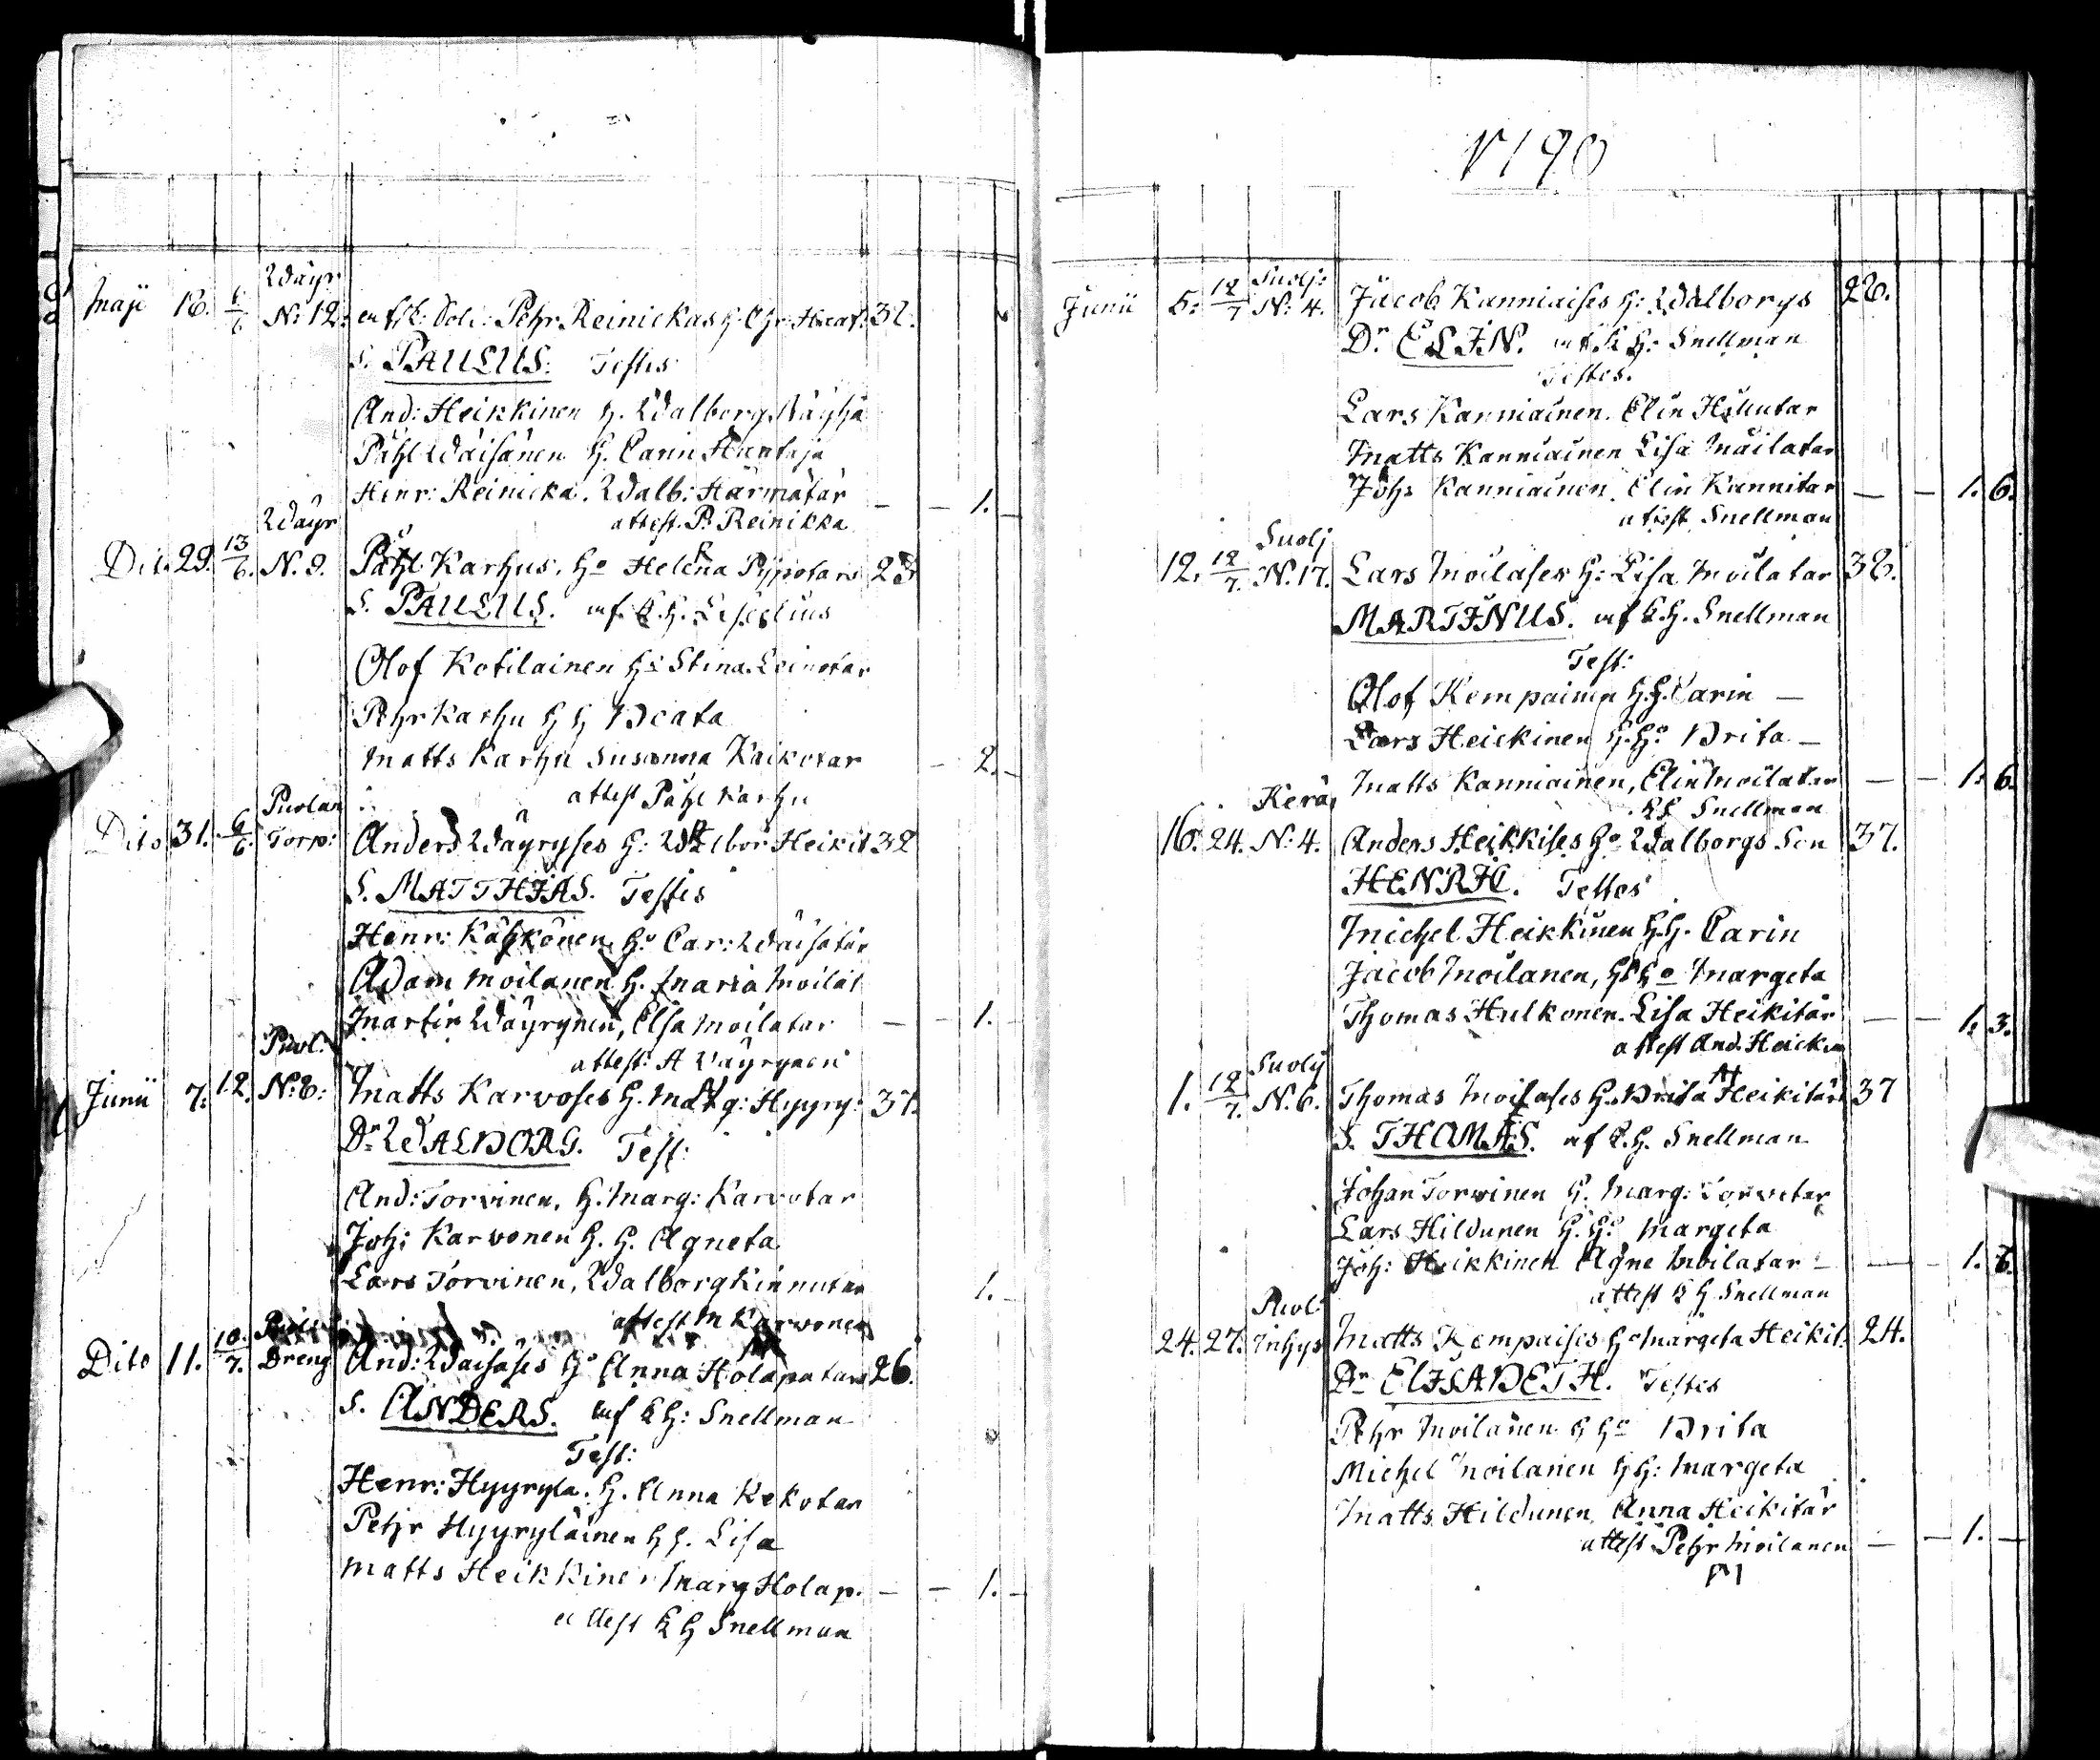 Wäyr
Maji 18. 6/6 N:12. Pehr Reinickas H. Chr: 32.
S. PAULUS. Testis
And: Heikkinen H. Walborg Näyhä
Påhl Wäisänen H. Carin Huntaja
Henr: Reinicka. Walb: Härmätär — — 1. —
attest. P. Reinikka
Wäyr
Dit. 29. 13/6. N. 9. Påhl Karhus. Ho Helena
S. PAULUS. af K. H.
Olof Kotilainen Ho Stina Leinotar
Pehr Karhu H H Beata
Matts Karhu Susanna Kaikotar — 2. —
attest Påhl Karhu
Puolan
Dito 31. 6/6. Torp: Anders Wäyryses H: Walbor Heikit 32
S. MATTHIAS. Testis
Henr: Kähkönen Ho Car: Wäisätär
Adam Moilanen H. Maria Moilat
Martin Wäyrynen, Elsa Moilatar — — 1. —
attest: A Väyrynen
Puol:
Junii 7. 12. N:8: Matts Karvoses H. Marg: Hyyry: 37.
Dr WALBORG. Test:
And: Torvinen, H. Marg: Karvotar
Joh: Karvonen H. H. Agneta
Lars Torvinen, Walborg Kinnutar 1.
attest M Karvonen
Dito 11. 10/7. Dreng And: Wäisäses Ho Anna Holapatars 26.
S. ANDERS. af K H: Snellman
Test:
Henr: Hyyryla. H. Anna Kekotar
Pehr Hyyryläinen H H. Lisa
Matts Heikkinen Marg Holap. — — 1. —
attest K H Snellman
1790
Suolj:
Junii 5. 12/7 N: 4. Jacob Kanniaises H: Walborgs 28.
Dr ELIN. af K H: Snellman
Testes.
Lars Kanniainen. Elin
Matts Kanniainen Lisa Mäilatar
Johs Kanniainen. Elin Kannitar — — 1. 6.
attest Snellman
Suolj
12. 12/7. N. 17. Lars Moilases H: Lisa Moilatar 38.
MARTINUS. af K. H. Snellman
Test:
Olof Kempainen H. H. Carin —
Lars Heickinen H. Ho Brita —
Matts Kanniainen, Elin Moilatar — — 1. 6.
Snellman
Kerä,
16. 24. N: 4. Anders Heikkises Ho Walborgs Son 37.
HENRIC. Testes
Michel Heikkinen H. H. Carin
Jacob Moilanen, H Ho Margeta
Thomas Hulkonen. Lisa Heikitär — — 1. 3.
attest And. Heickin
Suolj
1. 12/7. N. 6. Thomas Moilases H. Brita Heikitär 37
S. THOMAS. af K. H. Snellman
Johan Torvinen H. Marg: Torvetar
Lars Hildunen H. Ho Margeta
Joh: Heikkinen Agne Moilatar — — — 1. 6.
attest K H Snellman
Puol:
24. 27. Inhys Matts Kempaises Ho Margeta Heikit. 24.
Dr ELISABETH. Testis
Pehr Moilanen H Ho Brita
Michel Moilanen H H: Margeta
Matts Hildunen Anna Heikitär
attest Pehr Moilanen — — 1. —